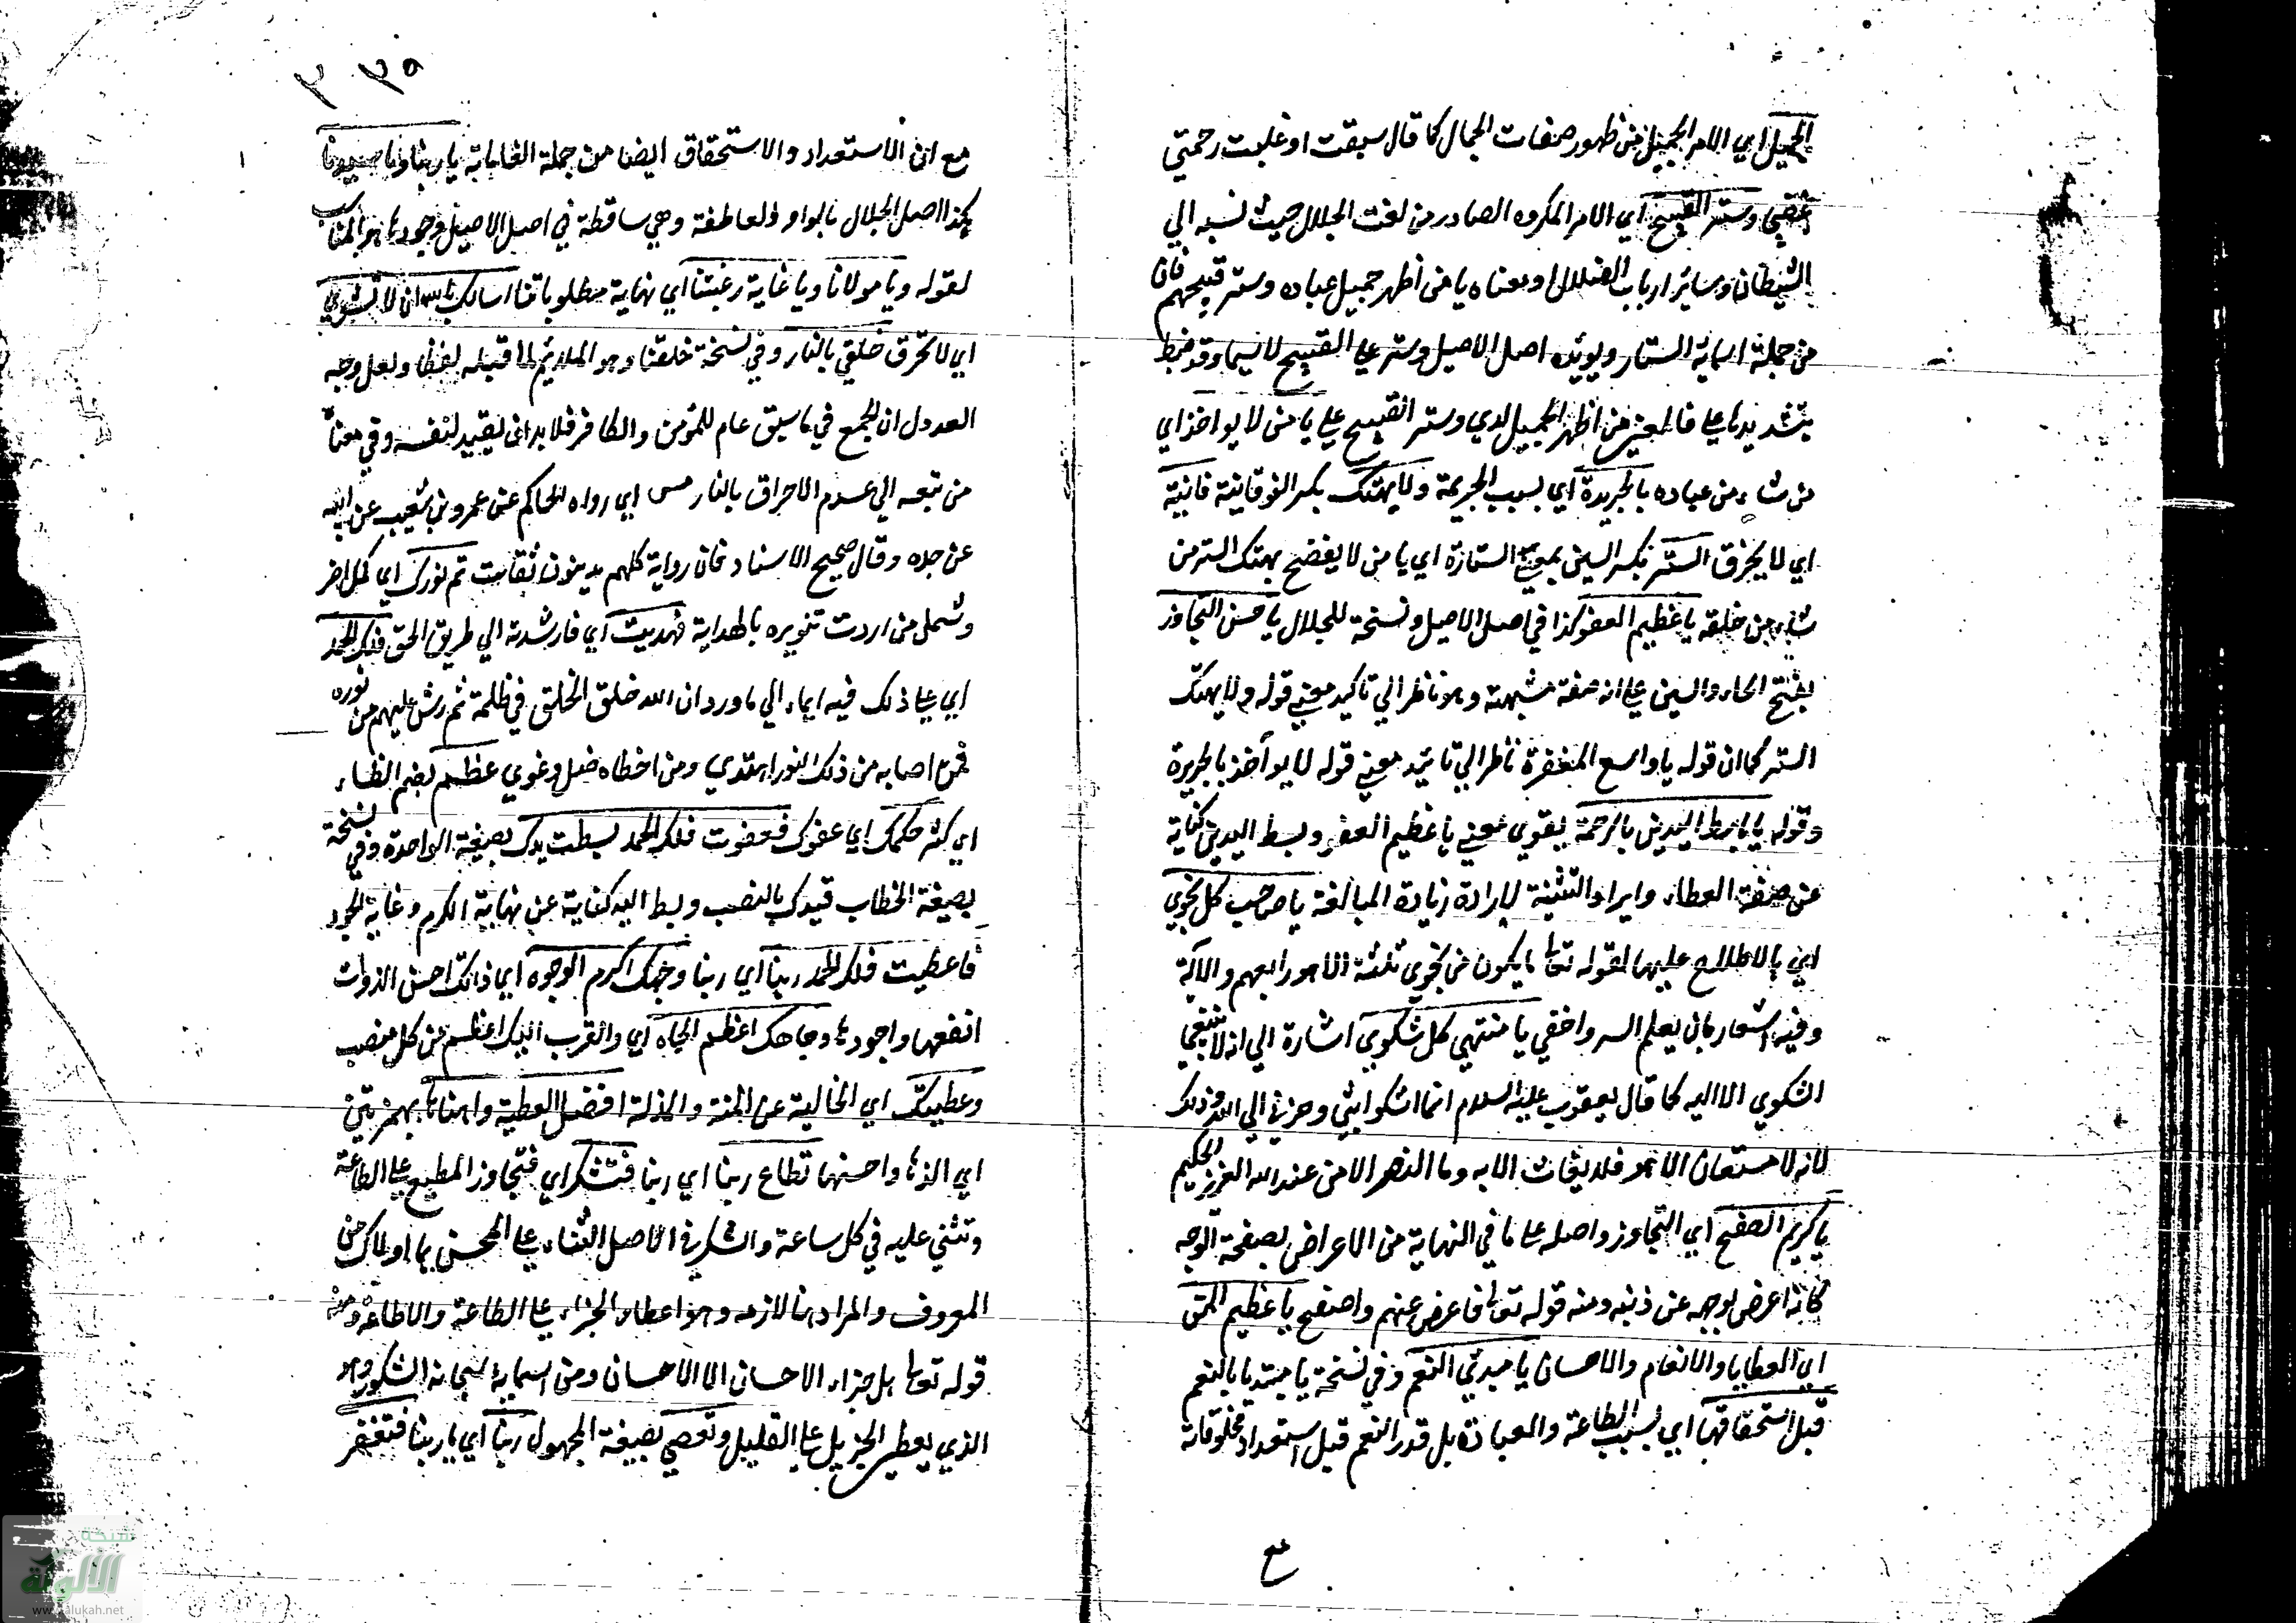 الجميل اي الامر الجميل من ظهور صفات الجمال كما قال سبقت او غلبت رحمتي
غضبي وستر القبيح اي الامر المكروه الصادر من نعت الجلال حيث نسبه الي
الشيطان وسائر ارباب الضلال ومعناه يا من أظهر جميل عباده وستر قبيحهم فان
من جملة اسمائه الستار ويويده اصل الاصيل وستر علي القبيح لاسيما وقد ضبط
بتشديدها علي فالمعني من اظهر الجميل لدي وستر القبيح علي يا من لا يواخذ اي
من شاء من عباده بالجريرة اي بسبب الجريمة ولا يهتك بكسر الفوقانية
اي لا يخرق الستر بكسر السين بمعني الستارة اي يا من لا يفضح بهتك الستر من
شاء من خلقه يا عظيم العفو كذا في اصل الاصيل ونسخة للجلال يا حسن التجاوز
بفتح الحاء والسين علي انه صفة مشبهة وهو ناظر الي تاكيد معني قوله ولا يهتك
الستر كما ان قوله يا واسع المغفرة ناظر الي تائيد معني قوله لا يواخذ بالجريرة
وقوله يا باسط اليدين بالرحمة يقوي معني يا عظيم العفو وبسط اليدين كناية
عن صفة العطاء وايراد التثنية لارادة زيادة المبالغة يا صاحب كل نجوي
اي بالاطلاع عليها لقوله تعا ما يكون من نجوي ثلثة الا هو رابعهم والآية
وفيه اشعار بان يعلم السر واخفي يا منتهي كل شكوي اشارة الي انه لا ينبغي
الشكوي الا اليه كما قال يعقوب عليه السلام انما اشكوا بثي وحزني الي الله وذلك
لانه لا مستعان الا هو فلا يغاث الا به وما النصر الا من عند الله العزيز الحكيم
يا كريم الصفح اي التجاوز واصله علي ما في النهاية من الاعراض بصفحة الوجه
كانه اعرض بوجهه عن ذنبه ومنه قوله تعا فاعرض عنهم واصفح يا عظيم المن
اي العطايا والانعام والاحسان يا مبدئ النعم وفي نسخة يا مبتديا بالنعم
قبل استحقاقها اي بسبب الطاعة والعبادة بل قدر النعم قبل استعداد مخلوقاته
ع
٣ ٣٥
مع ان الاستعداد والاستحقاق ايضا من جملة يا ربنا ويا سيدنا
كذا اصل الجلال بالواو والعاطفة وهي ساقطة في اصل الاصيل وجودها هو المناسب
لقوله ويا مولانا ويا غاية رغبتنا اي نهاية مطلوباتنا اسالك يا الله ان لا تشوي
اي لا تحرق خلقي بالنار وفي نسخة خلقنا وهو الملائم لما قبله لفظا ولعل وجه
العدول ان الجمع في ما سبق عام للمؤمن والكافر فلا بد ان يقيد لنفسه وفي معناه
من تبعه الي عدم الاحراق بالنار مس اي رواه الحاكم عن عمرو بن شعيب عن ابيه
عن جده وقال صحيح الاسناد فان رواية كلهم مدينون ثقات تم نورك اي كمل
وشمل من اردت تنويره بالهداية فهديت اي فارشدته الي طريق الحق فلك الحمد
اي علي ذلك فيه ايماء الي ما ورد ان الله خلق الخلق في ظلمة ثم رش عليهم من نوره
فمن اصابه من ذلك النور اهتدي ومن اخطاه ضل وغوي عظم بضم الظاء
اي كثر حلمك اي عفوك فعفوت فلك الحمد بسطت يدك بصيغة الواحدة وفي نسخة
بصيغة الخطاب فيدك بالنصب وبسط اليد كناية عن نهاية الكرم وغاية الجود
فاعطيت فلك الحمد ربنا اي ربنا وجهك اكرم الوجوه اي ذاتك احسن الذوات
انفعها واجودها وجاهك اعظم الجاه اي والقرب اليك اعظم من كل منصب
وعطيتك اي الخالية عن المنة والمذلة افضل العطية واهناها بهمزتين
اي الذها واحسنها تطاع ربنا اي ربنا فتشكر اي فتجاوز المطيع علي الطاعة
وتثني عليه في كل ساعة والشكر في الاصل الثناء علي المحسن بما اولاك من
المعروف والمراد هنا لازمه وهو اعطاء الجزاء علي الطاعة والاطاعة ومنه
قوله تعا هل جزاء الاحسان الا الاحسان ومن اسمايه سبحانه الشكور وهو
الذي يعطي الجزيل علي القليل وتعصي بصيغة المجهول ربنا اي يا ربنا فتغفر
شبكة
الألوكة
www.alukah.net